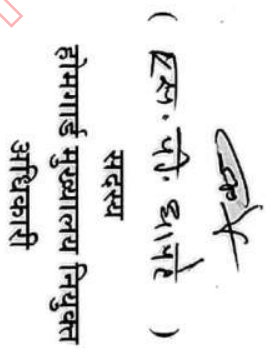 ( एस. पी. धापटे )
सदस्य
होमगार्ड मुख्यालय नियुक्त
अधिकारी